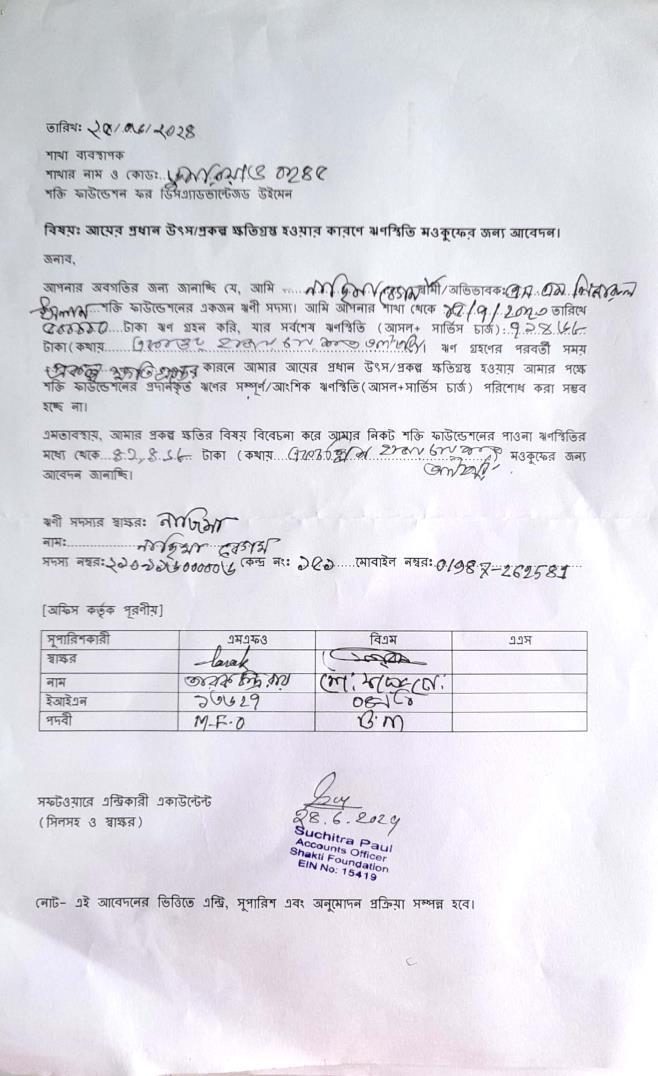 তারিখঃ ২৫/০৬/২০২৪
শাখা ব্যবস্থাপক
শাখার নাম ও কোডঃ
শক্তি ফাউন্ডেশন ফর ডিসএ্যাডভান্টেজড উইমেন
বিষয়ঃ আয়ের প্রধান উৎস/প্রকল্প ক্ষতিগ্রস্ত হওয়ার কারণে ঋণস্থিতি মওকুফের জন্য আবেদন।
জনাব,
আপনার অবগতির জন্য জানাচ্ছি যে, আমি .....নাজিমা বেগম স্বামী/অভিভাবকঃ এস এম
ইসলাম....শক্তি ফাউন্ডেশনের একজন ঋনী সদস্য। আমি আপনার শাখা থেকে তারিখে
টাকা ঋণ গ্রহন করি, যার সর্বশেষ ঋণস্থিতি (আসল+ সার্ভিস চার্জ)
টাকা(কথায় হাজার ঋণ গ্রহণের পরবর্তী সময়
প্রকল্প ক্ষতিগ্রস্তের কারনে আমার আয়ের প্রধান উৎস/প্রকল্প ক্ষতিগ্রস্ত হওয়ায় আমার পক্ষে
শক্তি ফাউন্ডেশনের প্রদানকৃত ঋণের সম্পূর্ণ/আংশিক ঋণস্থিতি(আসল+সার্ভিস চার্জ) পরিশোধ করা সম্ভব
হচ্ছে না।
এমতাবস্থায়, আমার প্রকল্প ক্ষতির বিষয় বিবেচনা করে আমার নিকট শক্তি ফাউন্ডেশনের পাওনা ঋণস্থিতির
মধ্যে থেকে টাকা (কথায় হাজার মওকুফের জন্য
আবেদন জানাচ্ছি।
ঋনী সদস্যর স্বাক্ষরঃ নাজিমা
নামঃ নাজিমা বেগম
সদস্য নম্বরঃ কেন্দ্র নং: ১৫১ ....মোবাইল নম্বরঃ 01987-262581
[অফিস কর্তৃক পূরণীয়]
সুপারিশকারী এমএফও বিএম এএস
স্বাক্ষর
নাম
ইআইএন ১৬৬২৭
পদবী M.F.O B.M
সফটওয়ারে এন্ট্রিকারী একাউন্টেন্ট
(সিলসহ ও স্বাক্ষর)
28.6.2024
Suchitra Paul
Accounts Officer
Shakti Foundation
EIN No: 15419
নোট- এই আবেদনের ভিত্তিতে এন্ট্রি, সুপারিশ এবং অনুমোদন প্রক্রিয়া সম্পন্ন হবে।